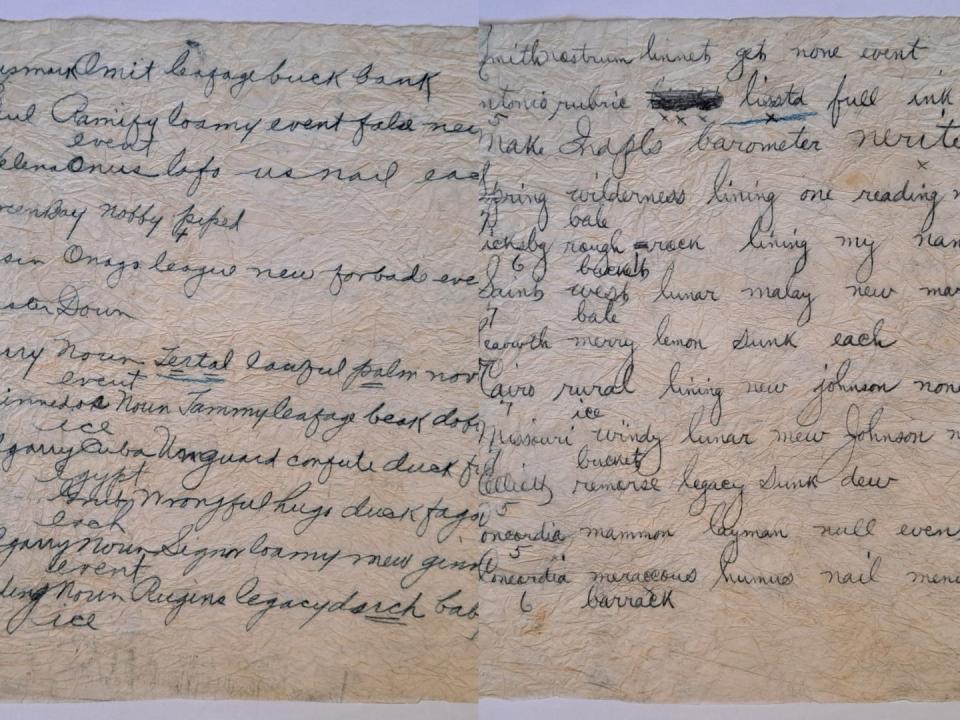 Omit leafage buck bank
Ramify loamy event false new
event
Onus lofo us nail each
Bay nobby piped
Onago league new forbade eve
Down
Noun Tertal lawful palm nov
event
Noun Jammy leafage beak dobi
ice
Cuba Unguard confute duck
Egypt
Wrongful hugo duck fago
each
Noun Signor loamy mew
event
Noun Rugins legacy dsrch bab
ice
Smith nostrum linnet get none event
rubric lissta full ink
5
Make Indpls barometer nerite
Spring wilderness lining one reading
bale
rough rock lining my nan
6 bucket
Saint west lunar malay new mar
7 bale
merry lemon sunk each
Cairo rural lining new johnson none
7 ice
Missouri windy lunar mew Johnson
bucket
Elliott remorse legacy sunk dew
5
Concordia mammon layman null event
5
Concordia meraccous humus nail men
6 barrack